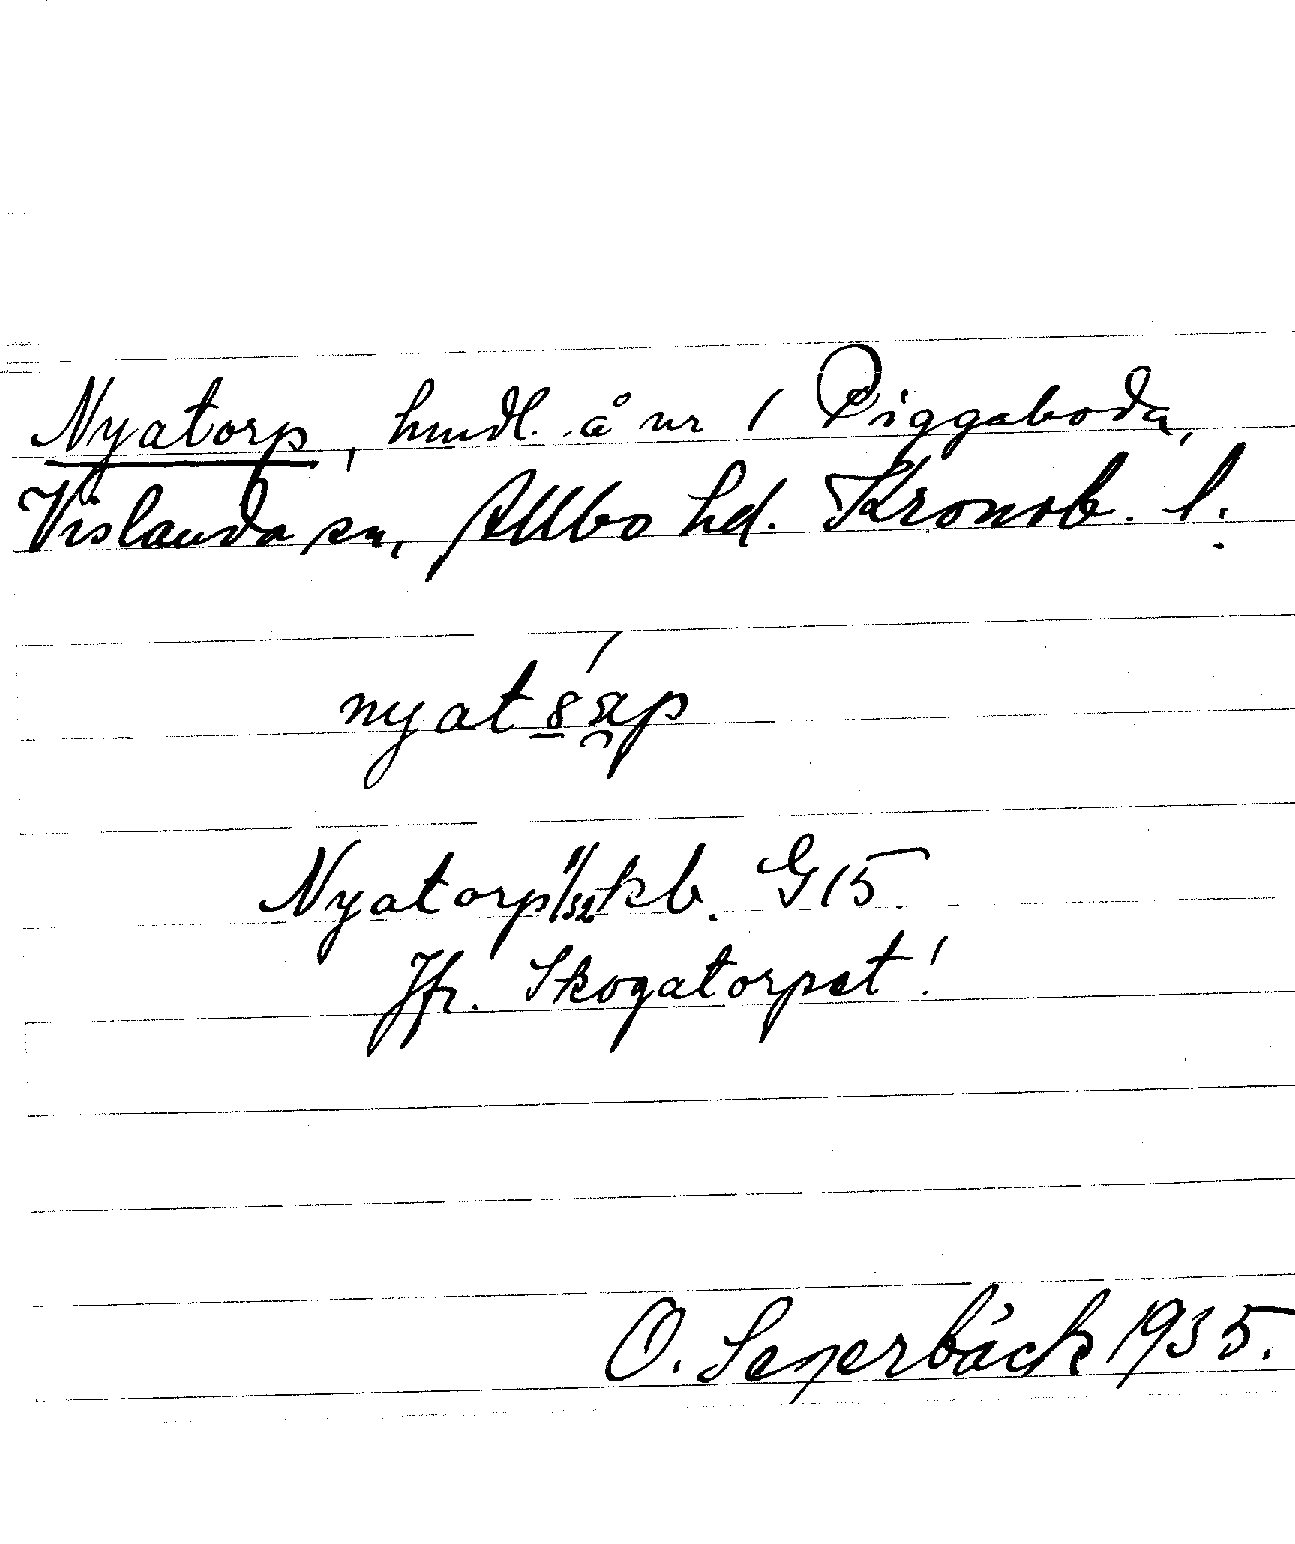 Nyatorp, hmdl. å nr 1 Piggaboda,
Vislanda sn, Allbo hd. Kronob. l.
Nyatorp 11/32 kb. G 15.
Jfr. Skogatorpet!
O. Sexerbäck 1935.